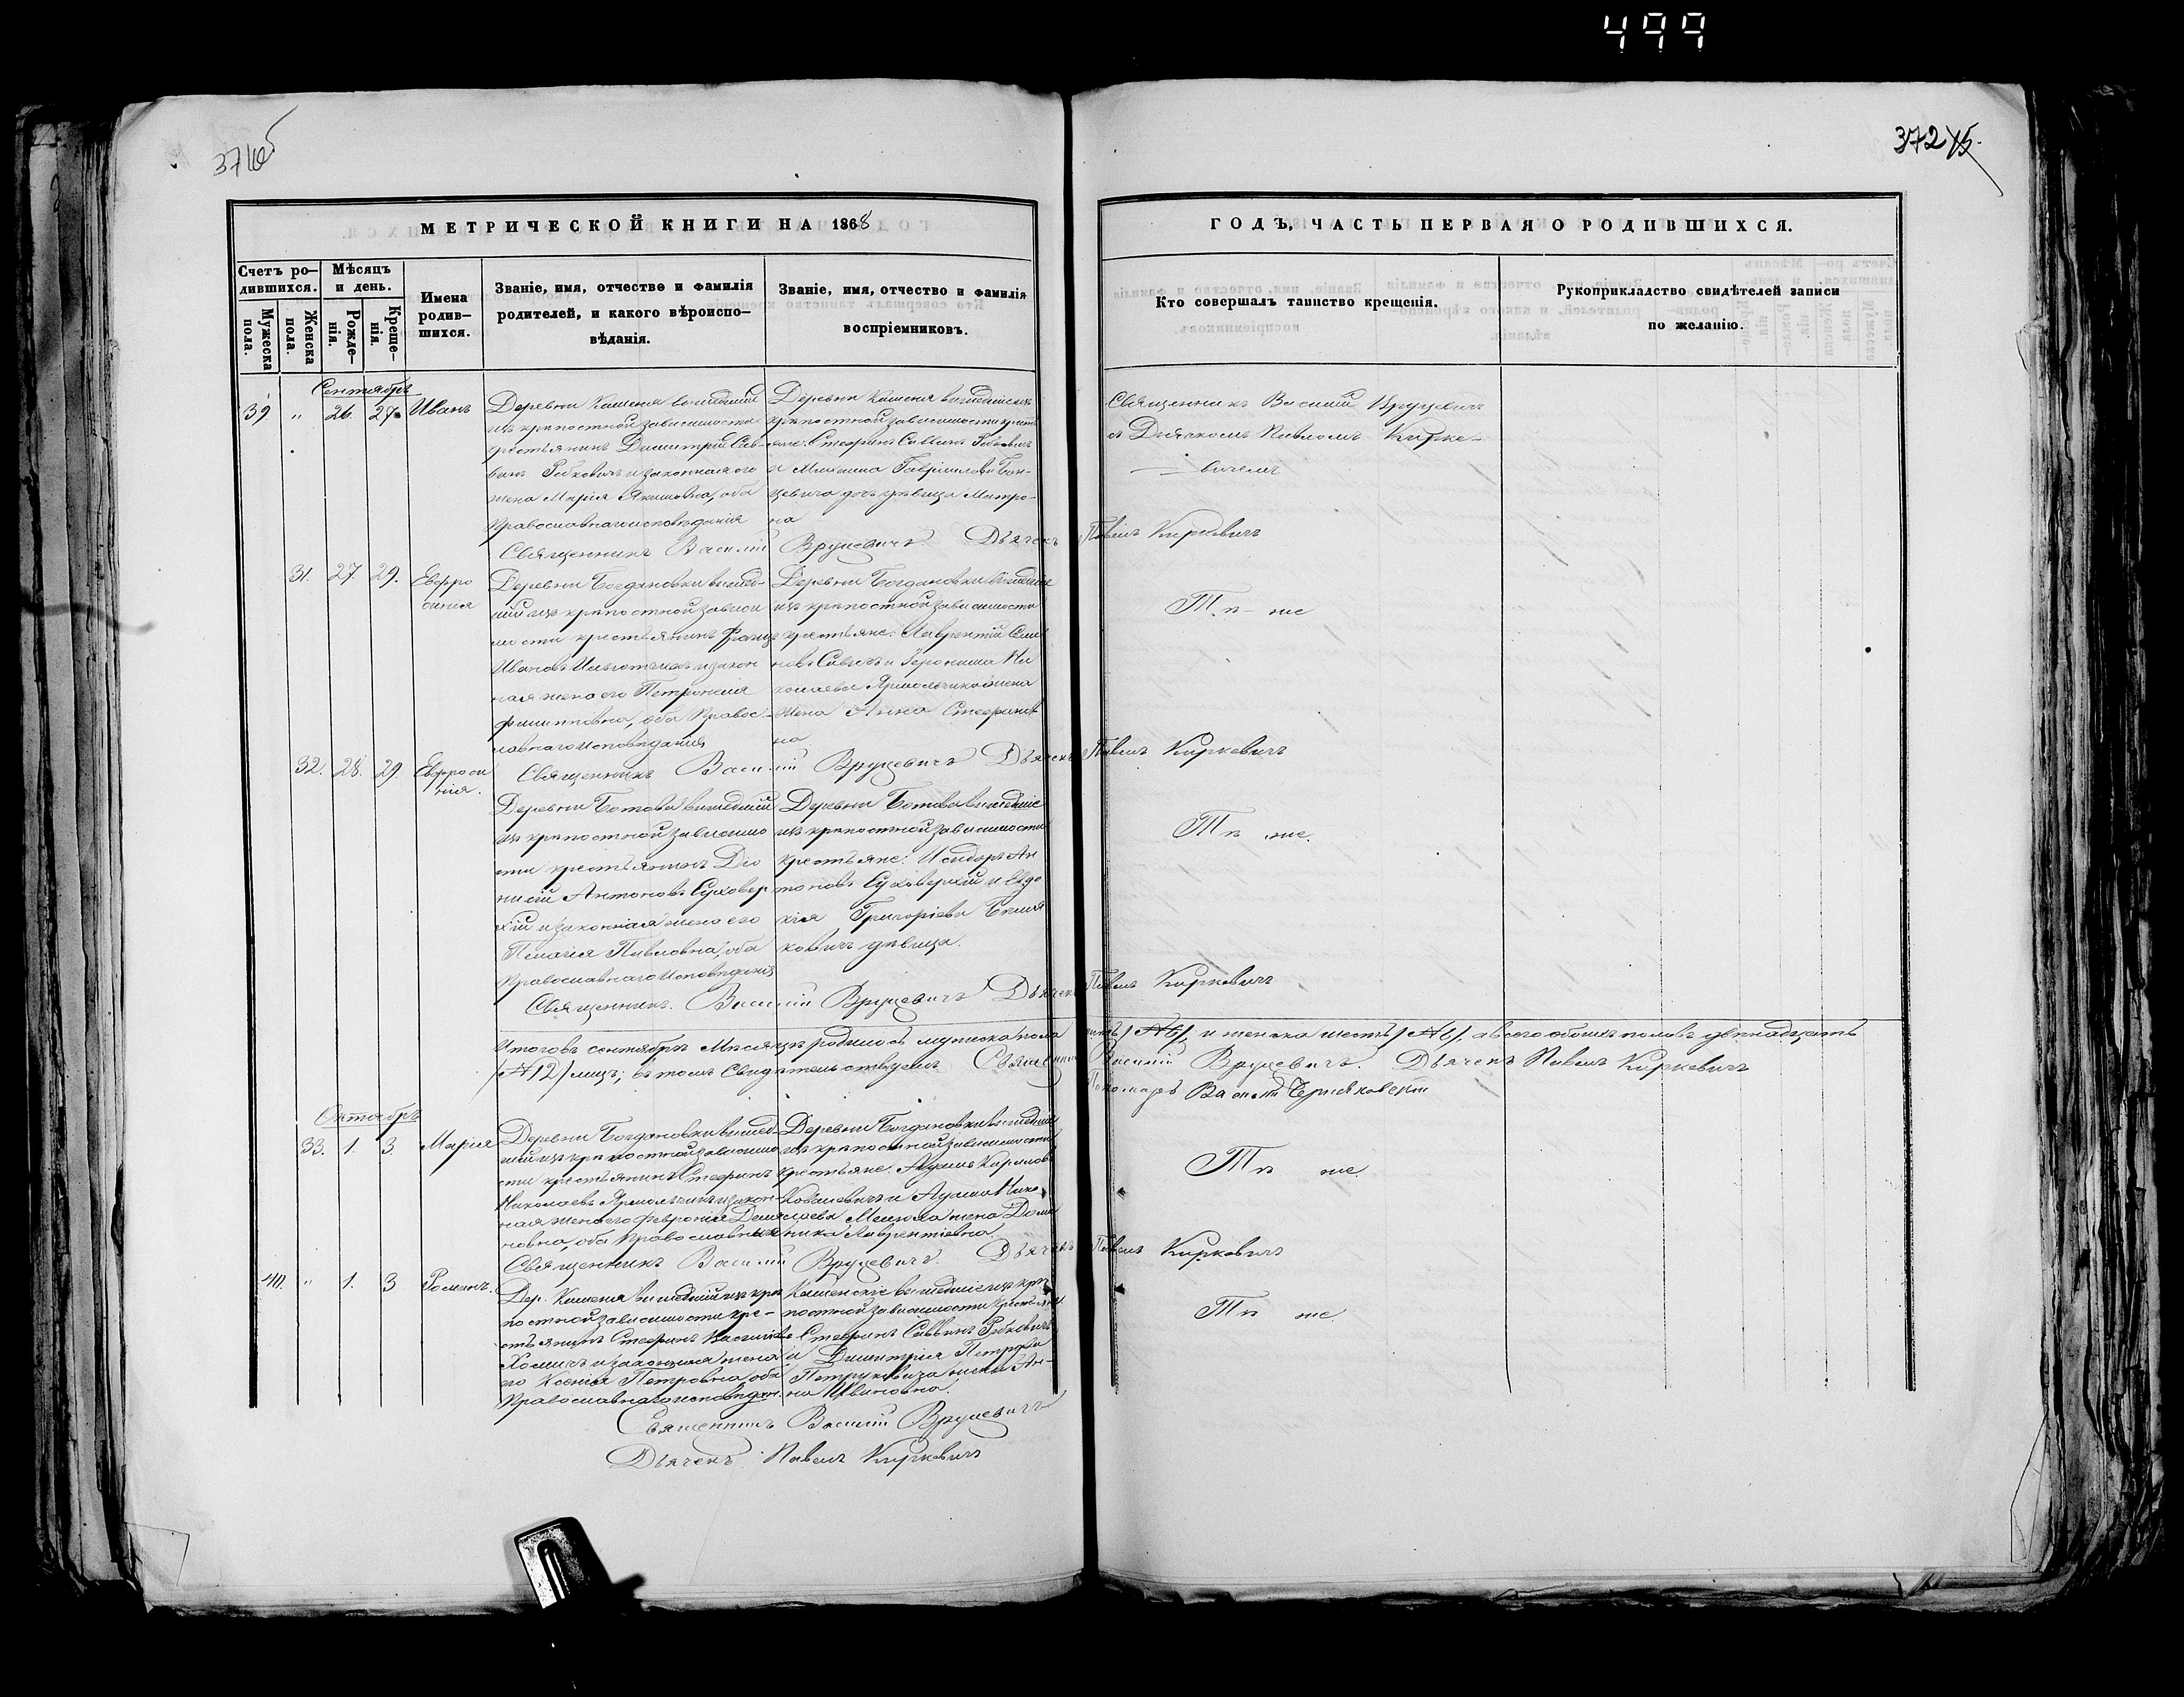 499
372
МЕТРИЧЕСКОЙ КНИГИ НА 1868
ГОДЪ, ЧАСТЬ ПЕРВАЯ О РОДИВШИХСЯ.
Счетъ ро-
дившихся.
Мужеска
пола.
Женска
пола.
Мѣсяцъ
и день.
Рожде-
нія.
Креще-
нія.
Имена
родив-
шихся.
Званіе, имя, отчество и фамилія
родителей, и какого вѣроиспо-
вѣданія.
Званіе, имя, отчество и фамилія
воспріемниковъ.
Кто совершалъ таинство крещенія.
Рукоприкладство свидѣтелей записи
по желанію.
Сентябрь
39 " 26. 27. Иванъ
Деревни Камення вышедшій
изъ крѣпостной зависимости
крестьянинъ Димитрій Сав-
винъ и законная его
жена Марія оба
Православнаго исповѣданія
Деревни Камення вышедшіе изъ
крѣпостной зависимости крест-
яне: Стефанъ Саввинъ
и Михаила Гавріилова Бон-
цевича дочь дѣвица Матро-
на
Священникъ Василій Вруцевичъ
съ Дьячкомъ Павломъ Кирке-
вичемъ
Священникъ Василій Вруцевичъ. Дьячекъ Павелъ Киркевичъ
31. 27. 29. Евфро
синія
Деревни Богдановки вышед-
шій изъ крѣпостной зависи
мости крестьянинъ
Ивановъ и закон
ная жена его Петронелія
Филипповна, оба Правос-
лавнаго исповѣданія
Деревни Богдановки вышедшіе
изъ крѣпостной зависимости
крестьяне: Лаврентій Семе
новъ Савичъ и Іеронима Ни
колаева Ярмольчика жена
жена Анна Стефанов
на
Тѣ-же
Священникъ Василій Вруцевичъ Дьячекъ Павелъ Киркевичъ
32. 28. 29 Евфроси
нія.
Деревни Ботова вышедшій
изъ крѣпостной зависимо
сти крестьянинъ Діо
нисій Антоновъ Суховер
хій и законная жена его
Пелагія Павловна, оба
Православнаго исповѣданія
Деревни Ботова вышедшіе
изъ крѣпостной зависимости
крестьяне: Исидоръ Ан
тоновъ Суховерхій и Евдо
кія Григоріева
ковичъ дѣвица.
Тѣ же.
Священникъ. Василій Вруцевичъ Дьячекъ Павелъ Киркевичъ
Итого въ сентябрѣ мѣсяцѣ родилось мужеска пола шесть /№ 6/, и женска шесть /№ 6/, а всего обоихъ половъ двѣнадцать
/№ 12/ лицъ; въ томъ Свидѣтельствуемъ Священникъ Василій Вруцевичъ. Дьячекъ Павелъ Киркевичъ
Пономарь Василій
Октябрь
33. 1. 3. Марія
Деревни Богдановки вышед-
шій изъ крѣпостной зависимо
сти крестьянинъ Стефанъ
Николаевъ Ярмольчикъ и закон-
ная жена его Февронія Демя
новна, оба Православныя
Деревни Богдановки вышедшіе
изъ крѣпостной зависимости
крестьяне:
Ковалевичъ и Нико
лаева жена Доми
ника Лаврентіевна.
Тѣ же.
Священникъ Василій Вруцевичъ. Дьячекъ Павелъ Киркевичъ
40. " 1. 3 Романъ.
Дер. Камення вышедшій изъ крѣ
постной зависимости кре-
стьянинъ Стефанъ Васильевъ
Хомичъ и законная жена
его Ксенія Петровна, оба
Православнаго исповѣдан.
Каменскіе вышедшіе изъ крѣ
постной зависимости крестьяне
Стефанъ Саввинъ
и Димитрія Петрова
Петруковича жена Ан-
на Ивановна.
Тѣ же.
Священникъ Василій Вруцевичъ
Дьячекъ Павелъ Киркевичъ